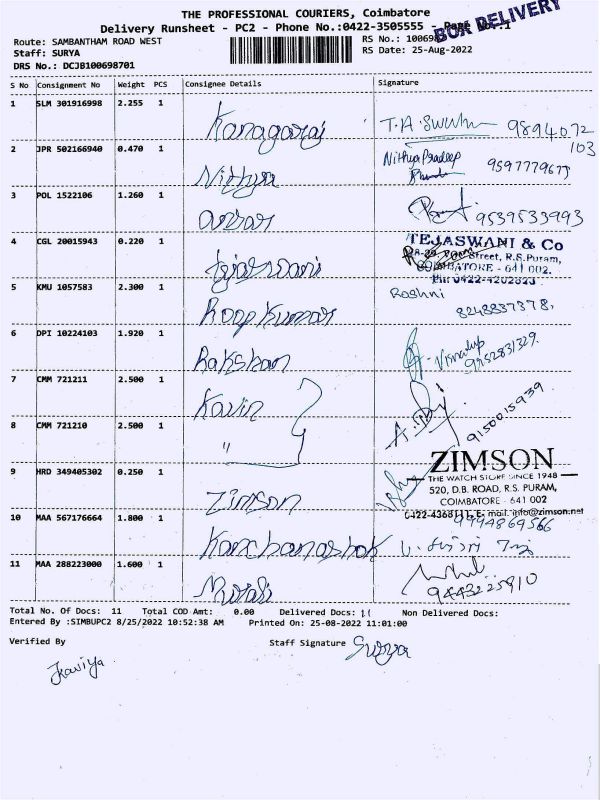 THE PROFESSIONAL COURIERS, Coimbatore
Delivery Runsheet - PC2 - Phone No.:0422-3505555 - Page No.:1
BOX DELIVERY
Route: SAMBANTHAM ROAD WEST RS No.: 100698
Staff: SURYA RS Date: 25-Aug-2022
DRS No.: DCJB100698701
S No Consignment No Weight PCS Consignee Details Signature
1 SLM 301916998 2.255 1 Kanagaraj T.A. 9894072
103
2 JPR 502166940 0.470 1 Nithya Nithya Pradeep
9597779677
3 POL 1522106 1.260 1 9539533993
4 CGL 20015943 0.220 1 Tejaswani TEJASWANI & Co
Street, R.S.Puram,
COIMBATORE - 641 002.
Ph: 0422-4202823
5 KMU 1057583 2.300 1 Roop Kumar Roshni
8248837378.
6 DPI 10224103 1.920 1 Rakshan
9952831329.
7 CMM 721211 2.500 1 Kavin
9150015939
8 CMM 721210 2.500 1 "
9 HRD 349405302 0.250 1 Zimson ZIMSON
THE WATCH STORE SINCE 1948
520, D.B. ROAD, R.S. PURAM,
COIMBATORE - 641 002
E- mail: info@zimson.net
10 MAA 567176664 1.800 1 Kanchanashok 9994869566
11 MAA 288223000 1.600 1 Murali
9443225910
Total No. Of Docs: 11 Total COD Amt: 0.00 Delivered Docs: 11 Non Delivered Docs:
Entered By :SIMBUPC2 8/25/2022 10:52:38 AM Printed On: 25-08-2022 11:01:00
Verified By Staff Signature Surya
Kaviya